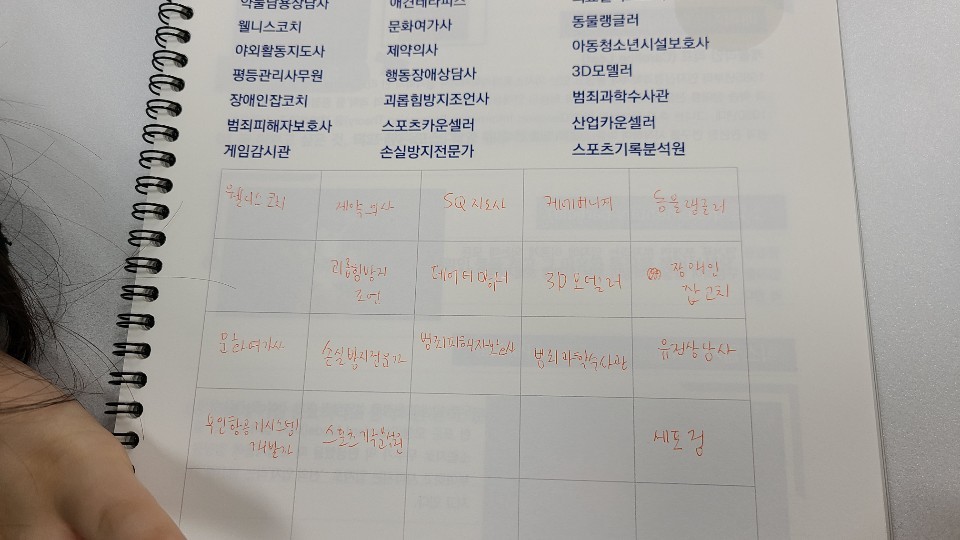 약물남용상담사
웰니스코치 문화여가사 동물랭글러
야외활동지도사 제약의사 아동청소년시설보호사
평등관리사무원 행동장애상담사 3D모델러
장애인잡코치 괴롭힘방지조언사 범죄과학수사관
범죄피해자보호사 스포츠카운셀러 산업카운셀러
게임감시관 손실방지전문가 스포츠기록분석원
웰니스 코치 제약 의사 SQ 지도사 동물랭글러
괴롭힘방지 3D 모델러 장애인
조언 잡코치
문화여가사 손실방지전문가 범죄피해자보호사 범죄과학수사관 유전상담사
무인항공기시스템
개발자